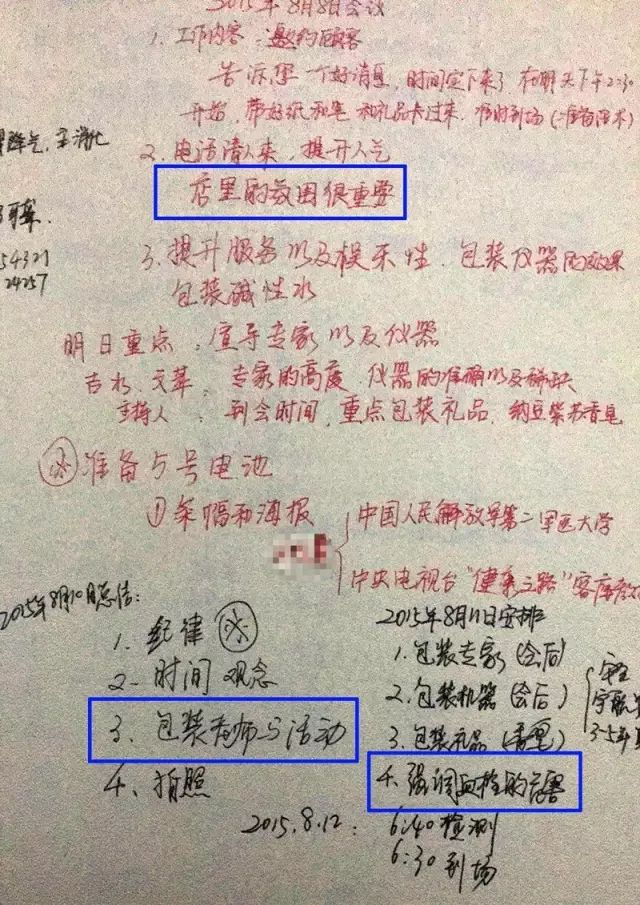 2015年8月8日会议
1. 工作内容：邀约顾客
告诉您一个好消息，时间定下来了 在明天下午2:30
开始，带好纸和笔 和礼品卡过来，准时到场
2. 电话请人来，提升人气
店里的氛围很重要
3. 提升服务以及娱乐性，包装仪器的效果
包装碱性水
54321
24257
明日重点：宣导专家以及仪器
吉水、文革：专家的高度 仪器的准确以及稀缺
主持人：到会时间，重点包装礼品，纳豆紫苏香皂
准备5号电池
①条幅和海报
中国人民解放军第二军医大学
中央电视台"健康之路"客座
2015年8月10日总结：
1. 纪律
2. 时间观念
3、包装老师与活动
4、拍照
2015年8月11日安排
1. 包装专家（会后）
2. 包装机器（会后）
3. 包装礼品
4. 强调血栓的危害
2015.8.12：6:40检测
6:30到场